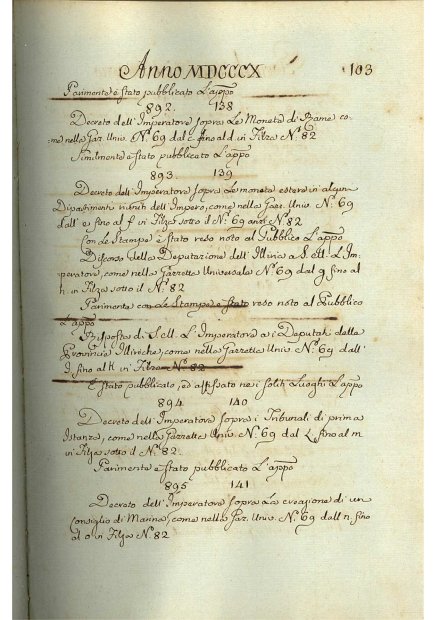 Anno MDCCCX 103
Parimente è stato pubblicato L'appo
892. 138
Decreto dell'Imperatore sopra Le Monete di Rame co-
me nella Gaz. Univ. Nº 69 dal c fino al d in Filza Nº 82
Similmente è stato pubblicato L'appo
893. 139
Decreto dell'Imperatore sopra Le monete estere in alcuni
Dipartimenti riuniti dell'Impero, come nella Gaz. Univ. Nº 69
dall'e fino al f in Filza sotto il Nº 69 anzi Nº 82
Con Le Stampe è stato reso noto al Pubblico L'appo
Discorso della Deputazione dell'Illiria a S. M. L'Im-
peratore, come nella Gazzetta Universale Nº 69 dal g fino al
h in Filza sotto il Nº 82
Parimente con Le Stampe è stato reso noto al Pubblico
L'appo
Risposta di S. M. L'Imperatore a i Deputati delle
Provincie Illiriche, come nella Gazzetta Univ. Nº 69 dall'
I fino al K in Filza Nº 82
È stato pubblicato, ed affissato nei soliti Luoghi L'appo
894 140
Decreto dell'Imperatore sopra i Tribunali di prima
Istanza, come nella Gazzetta Univ. Nº 69 dal L fino al m
in Filza sotto il Nº 82.
Parimente è stato pubblicato L'appo
895 141
Decreto dell'Imperatore sopra La creazione di un
Consiglio di Marina, come nella Gaz. Univ. Nº 69 dall'n fino
al o in Filza Nº 82